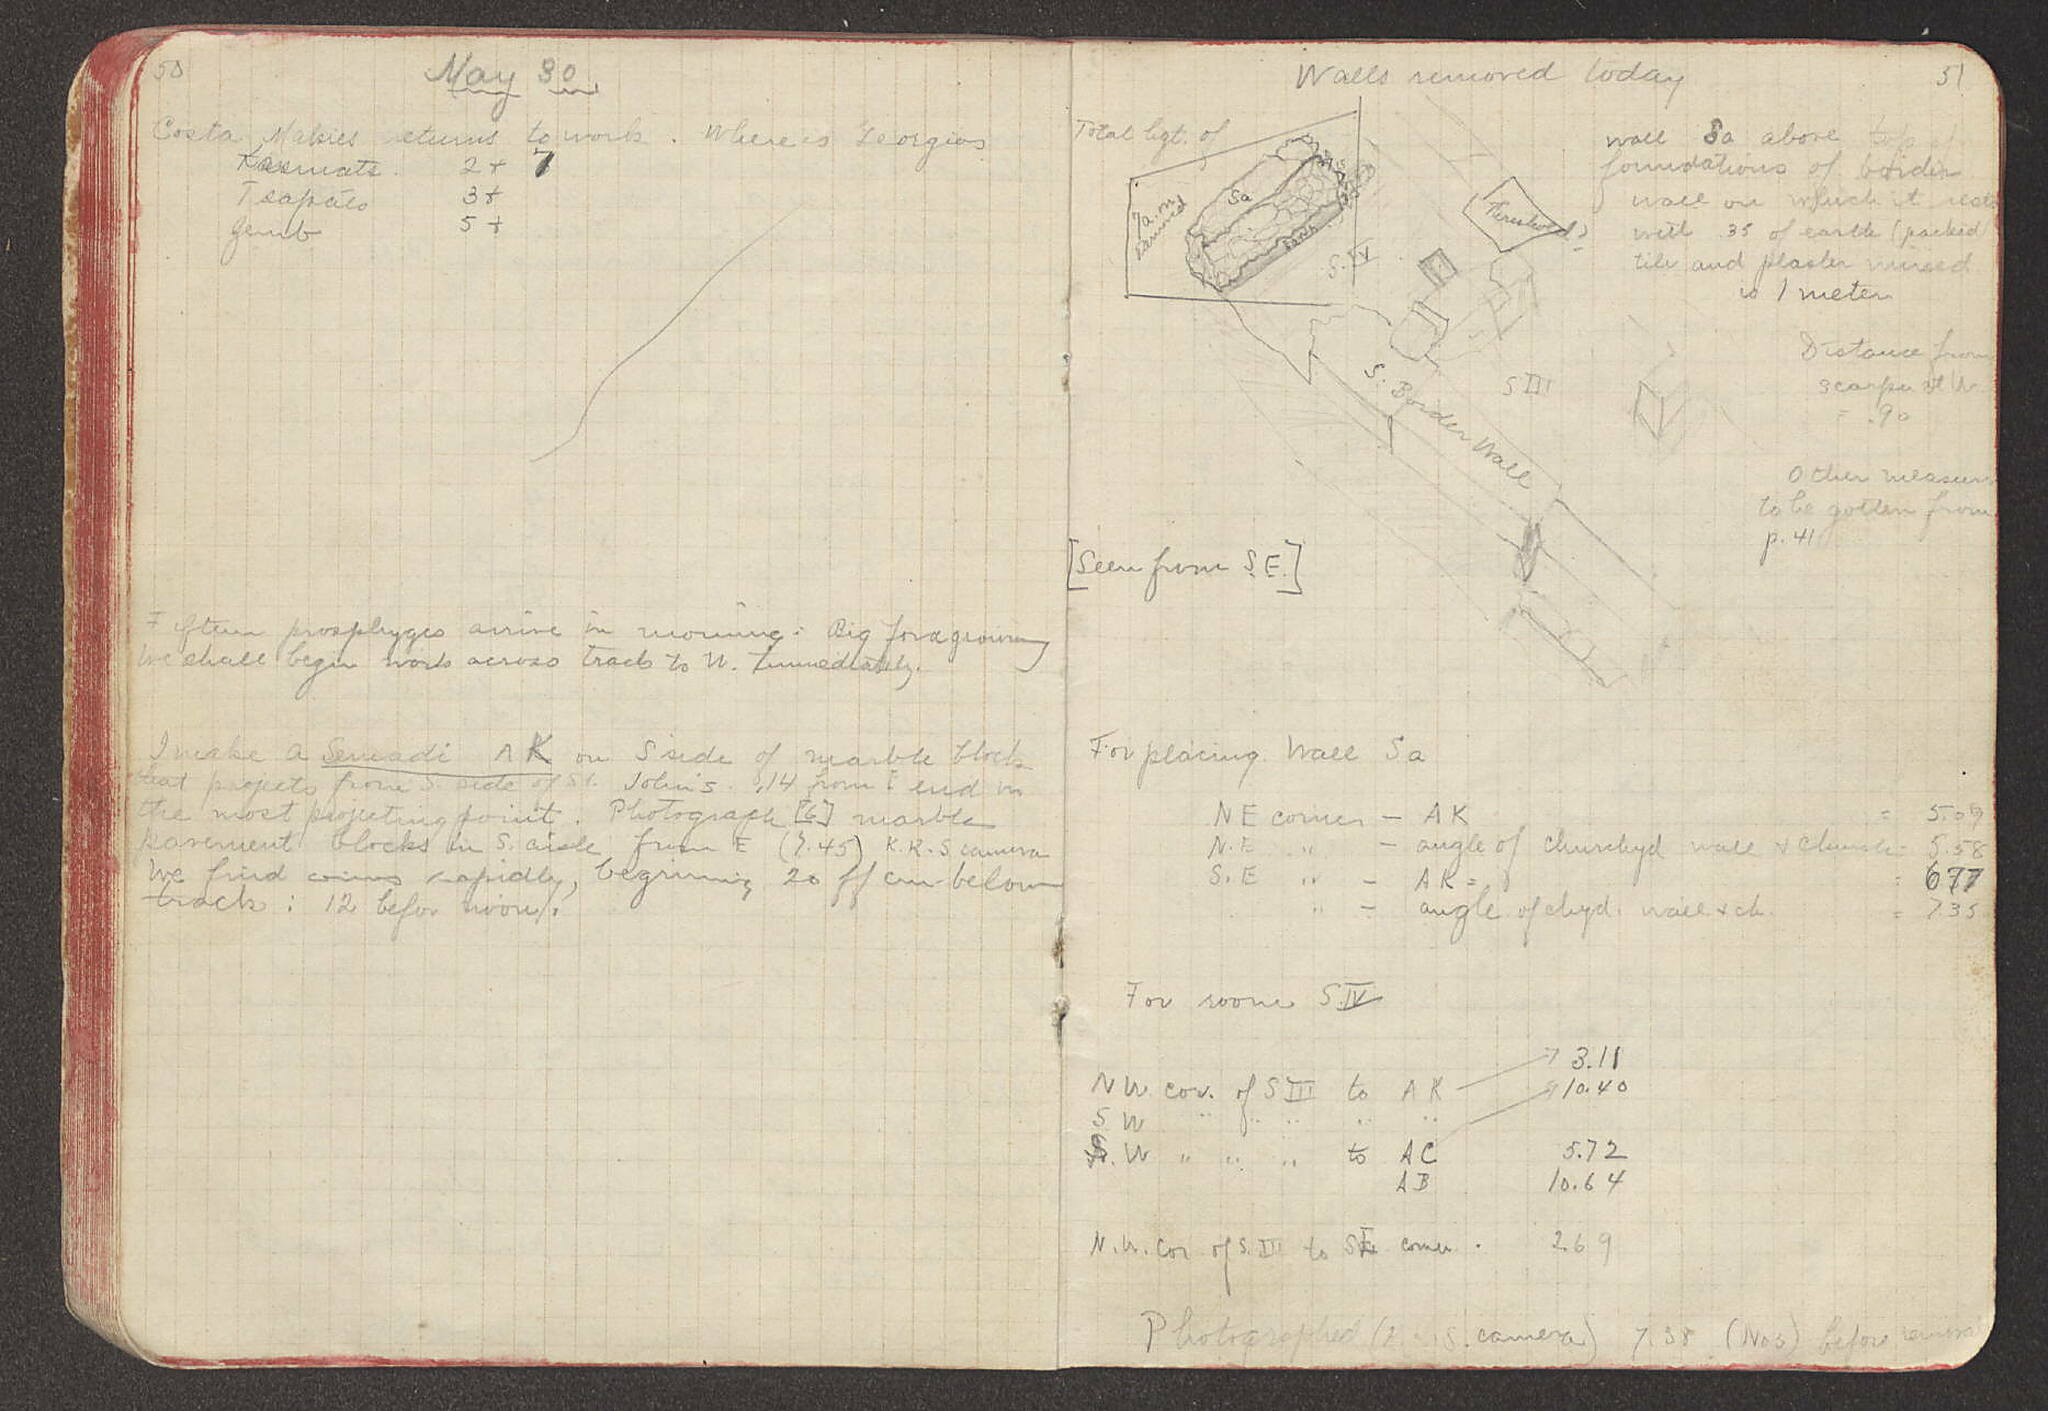 50
May 30
Costa Makres returns to work. Where is Georgios
Kosmats. 2 + 7
Tsapatis 3 +
Zemb 5 +
Fifteen prosphyges arrive in morning: Big
We shall begin work across track to W. Immediately.
I make a Semadi AK on S side of marble block
that projects from S. side of St. John's .14 from E end in
the most projecting point. Photograph [6] marble
pavement blocks in S. aisle from E (7.45) K.K.S camera
We find coins rapidly, beginning 20 ff cm below
track: 12 befor noon.
Walls removed today
51
Total hgt. of
wall Sa above top of
foundations of border
wall on which it rests
with .35 of earth (packed
tile and plaster mixed
is 1 meter
Sa
S. IV
Threshold?
S III
S. Border Wall
Distance from
scarp at W.
= .90
Other measures
to be gotten from
p. 41
[Seen from S.E.]
For placing Wall Sa
NE corner — AK = 5.09
N.E " — angle of churchyd wall & church = 5.58
S.E " — AK = 677
" — angle of chyd. wall & ch. = 7.35
For room S.IV
3.11
N W. cor. of S III to AK 10.40
S W " " " " "
S. W " " " to AC 5.72
AB 10.64
N.W. cor of S. III to SE corner. 2.69
Photographed ( S. camera) 7.38 (No 5) before removal